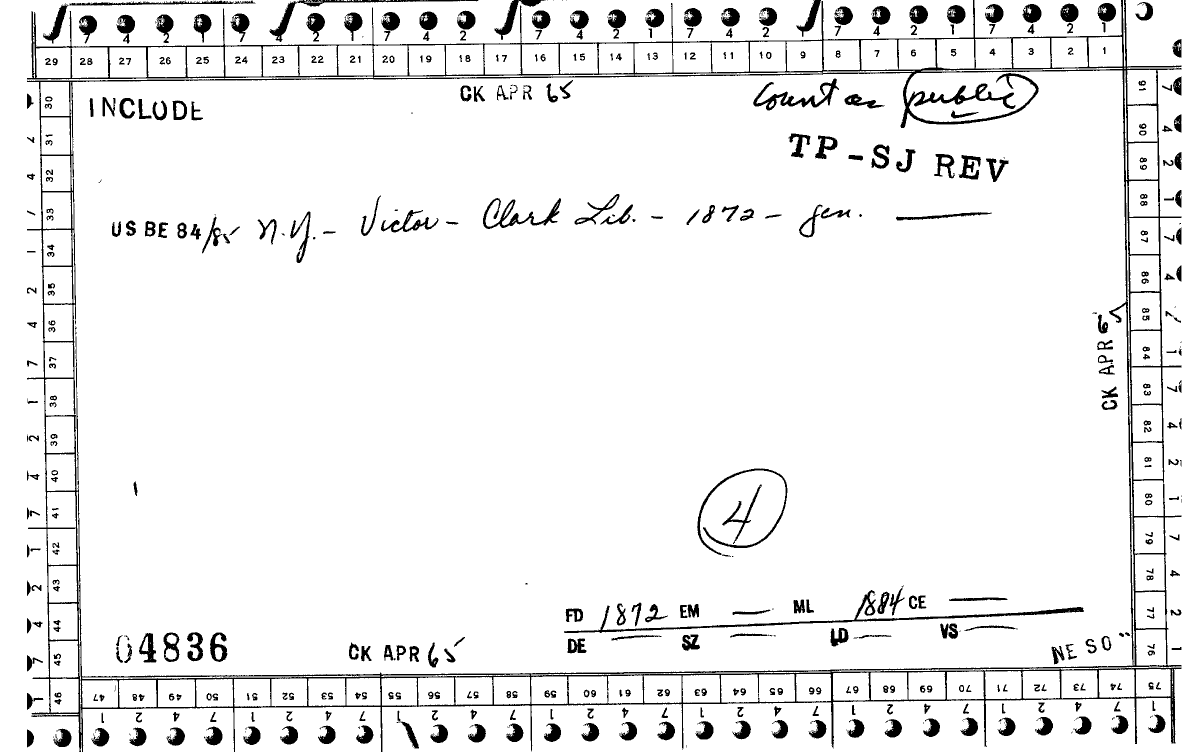 7 4 2 1 7 4 2 1 7 4 2 1 7 4 2 1 7 4 2 1 7 4 2 1 7 4 2 1
29 28 27 26 25 24 23 22 21 20 19 18 17 16 15 14 13 12 11 10 9 8 7 6 5 4 3 2 1
INCLUDE
CK APR 65
Count as public
TP-SJ REV
US BE 84/85 N.Y. - Victor - Clark Lib. - 1872 - gen. —
CK APR 65
4
FD 1872 EM — ML 1884 CE —
DE — SZ — LD — VS —
04836
CK APR 65
NE SO "
30 31 32 33 34 35 36 37 38 39 40 41 42 43 44 45 46
91 90 89 88 87 86 85 84 83 82 81 80 79 78 77 76
47 48 49 50 51 52 53 54 55 56 57 58 59 60 61 62 63 64 65 66 67 68 69 70 71 72 73 74 75